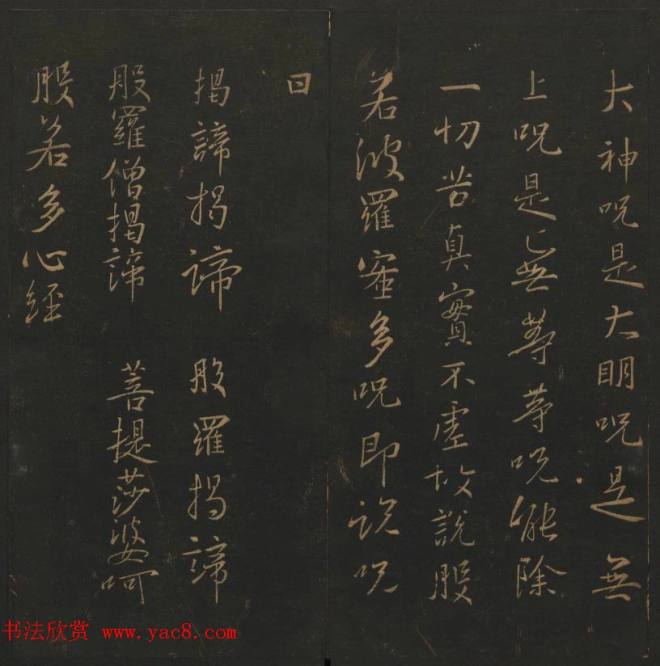 大神咒是大明咒是無
上咒是無等等咒能除
一切苦真實不虛故說般
若波羅蜜多咒即說咒
曰
揭諦揭諦 般羅揭諦
般羅僧揭諦 菩提莎婆呵
般若多心經
书法欣赏 www.yac8.com